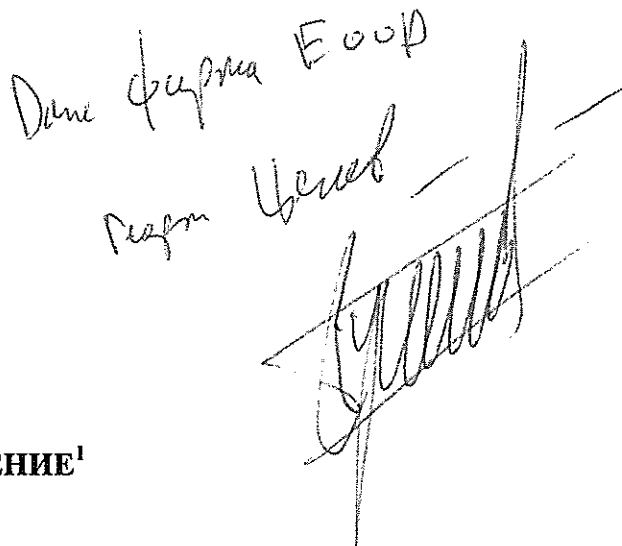 Дани фирма ЕООД
Георги Ценов –
ЕНИЕ¹